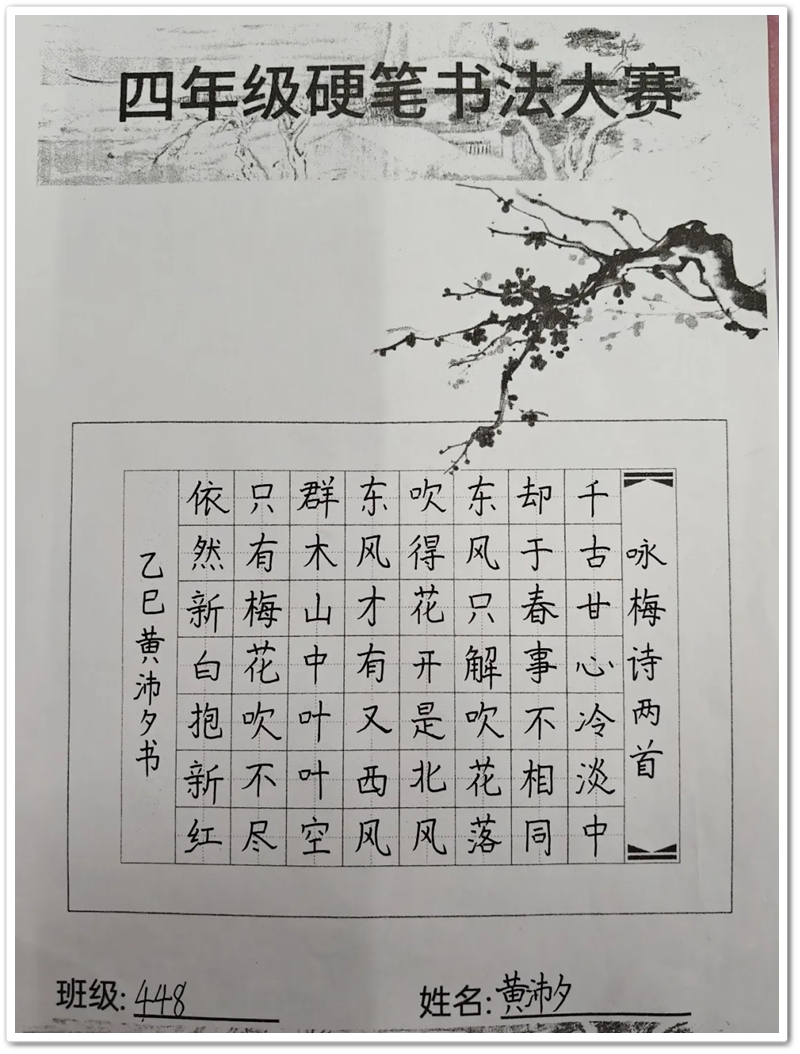 四年级硬笔书法大赛
咏梅诗两首
千古甘心冷淡中
却于春事不相同
东风只解吹花落
吹得花开是北风
东风才有又西风
群木山中叶叶空
只有梅花吹不尽
依然新白抱新红
乙巳黄沛夕书
班级:448
姓名:黄沛夕